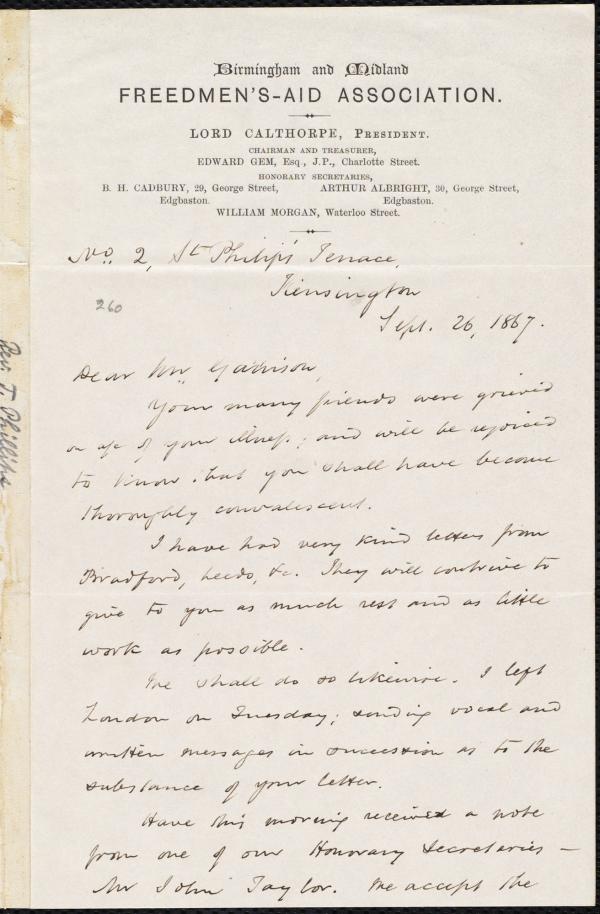 Birmingham and Midland
FREEDMEN'S-AID ASSOCIATION.
LORD CALTHORPE, PRESIDENT.
CHAIRMAN AND TREASURER,
EDWARD GEM, Esq., J.P., Charlotte Street.
HONORARY SECRETARIES,
B. H. CADBURY, 29, George Street, Edgbaston.
ARTHUR ALBRIGHT, 30, George Street, Edgbaston.
WILLIAM MORGAN, Waterloo Street.
No. 2, St Philip's Terrace,
Kensington
260
Sept. 26, 1867.
Dear Mr Garrison,
Your many friends were grieved
on a/c of your illness; and will be rejoiced
to know that you shall have become
thoroughly convalescent.
I have had very kind letters from
Bradford, Leeds, &c. They will contrive to
give to you as much rest and as little
work as possible.
We shall do so likewise. I left
London on Tuesday; sending vocal and
written messages in succession as to the
substance of your letter.
Have this morning received a note
from one of our Honorary Secretaries —
Mr John Taylor. We accept the
Rev. T. Phillips